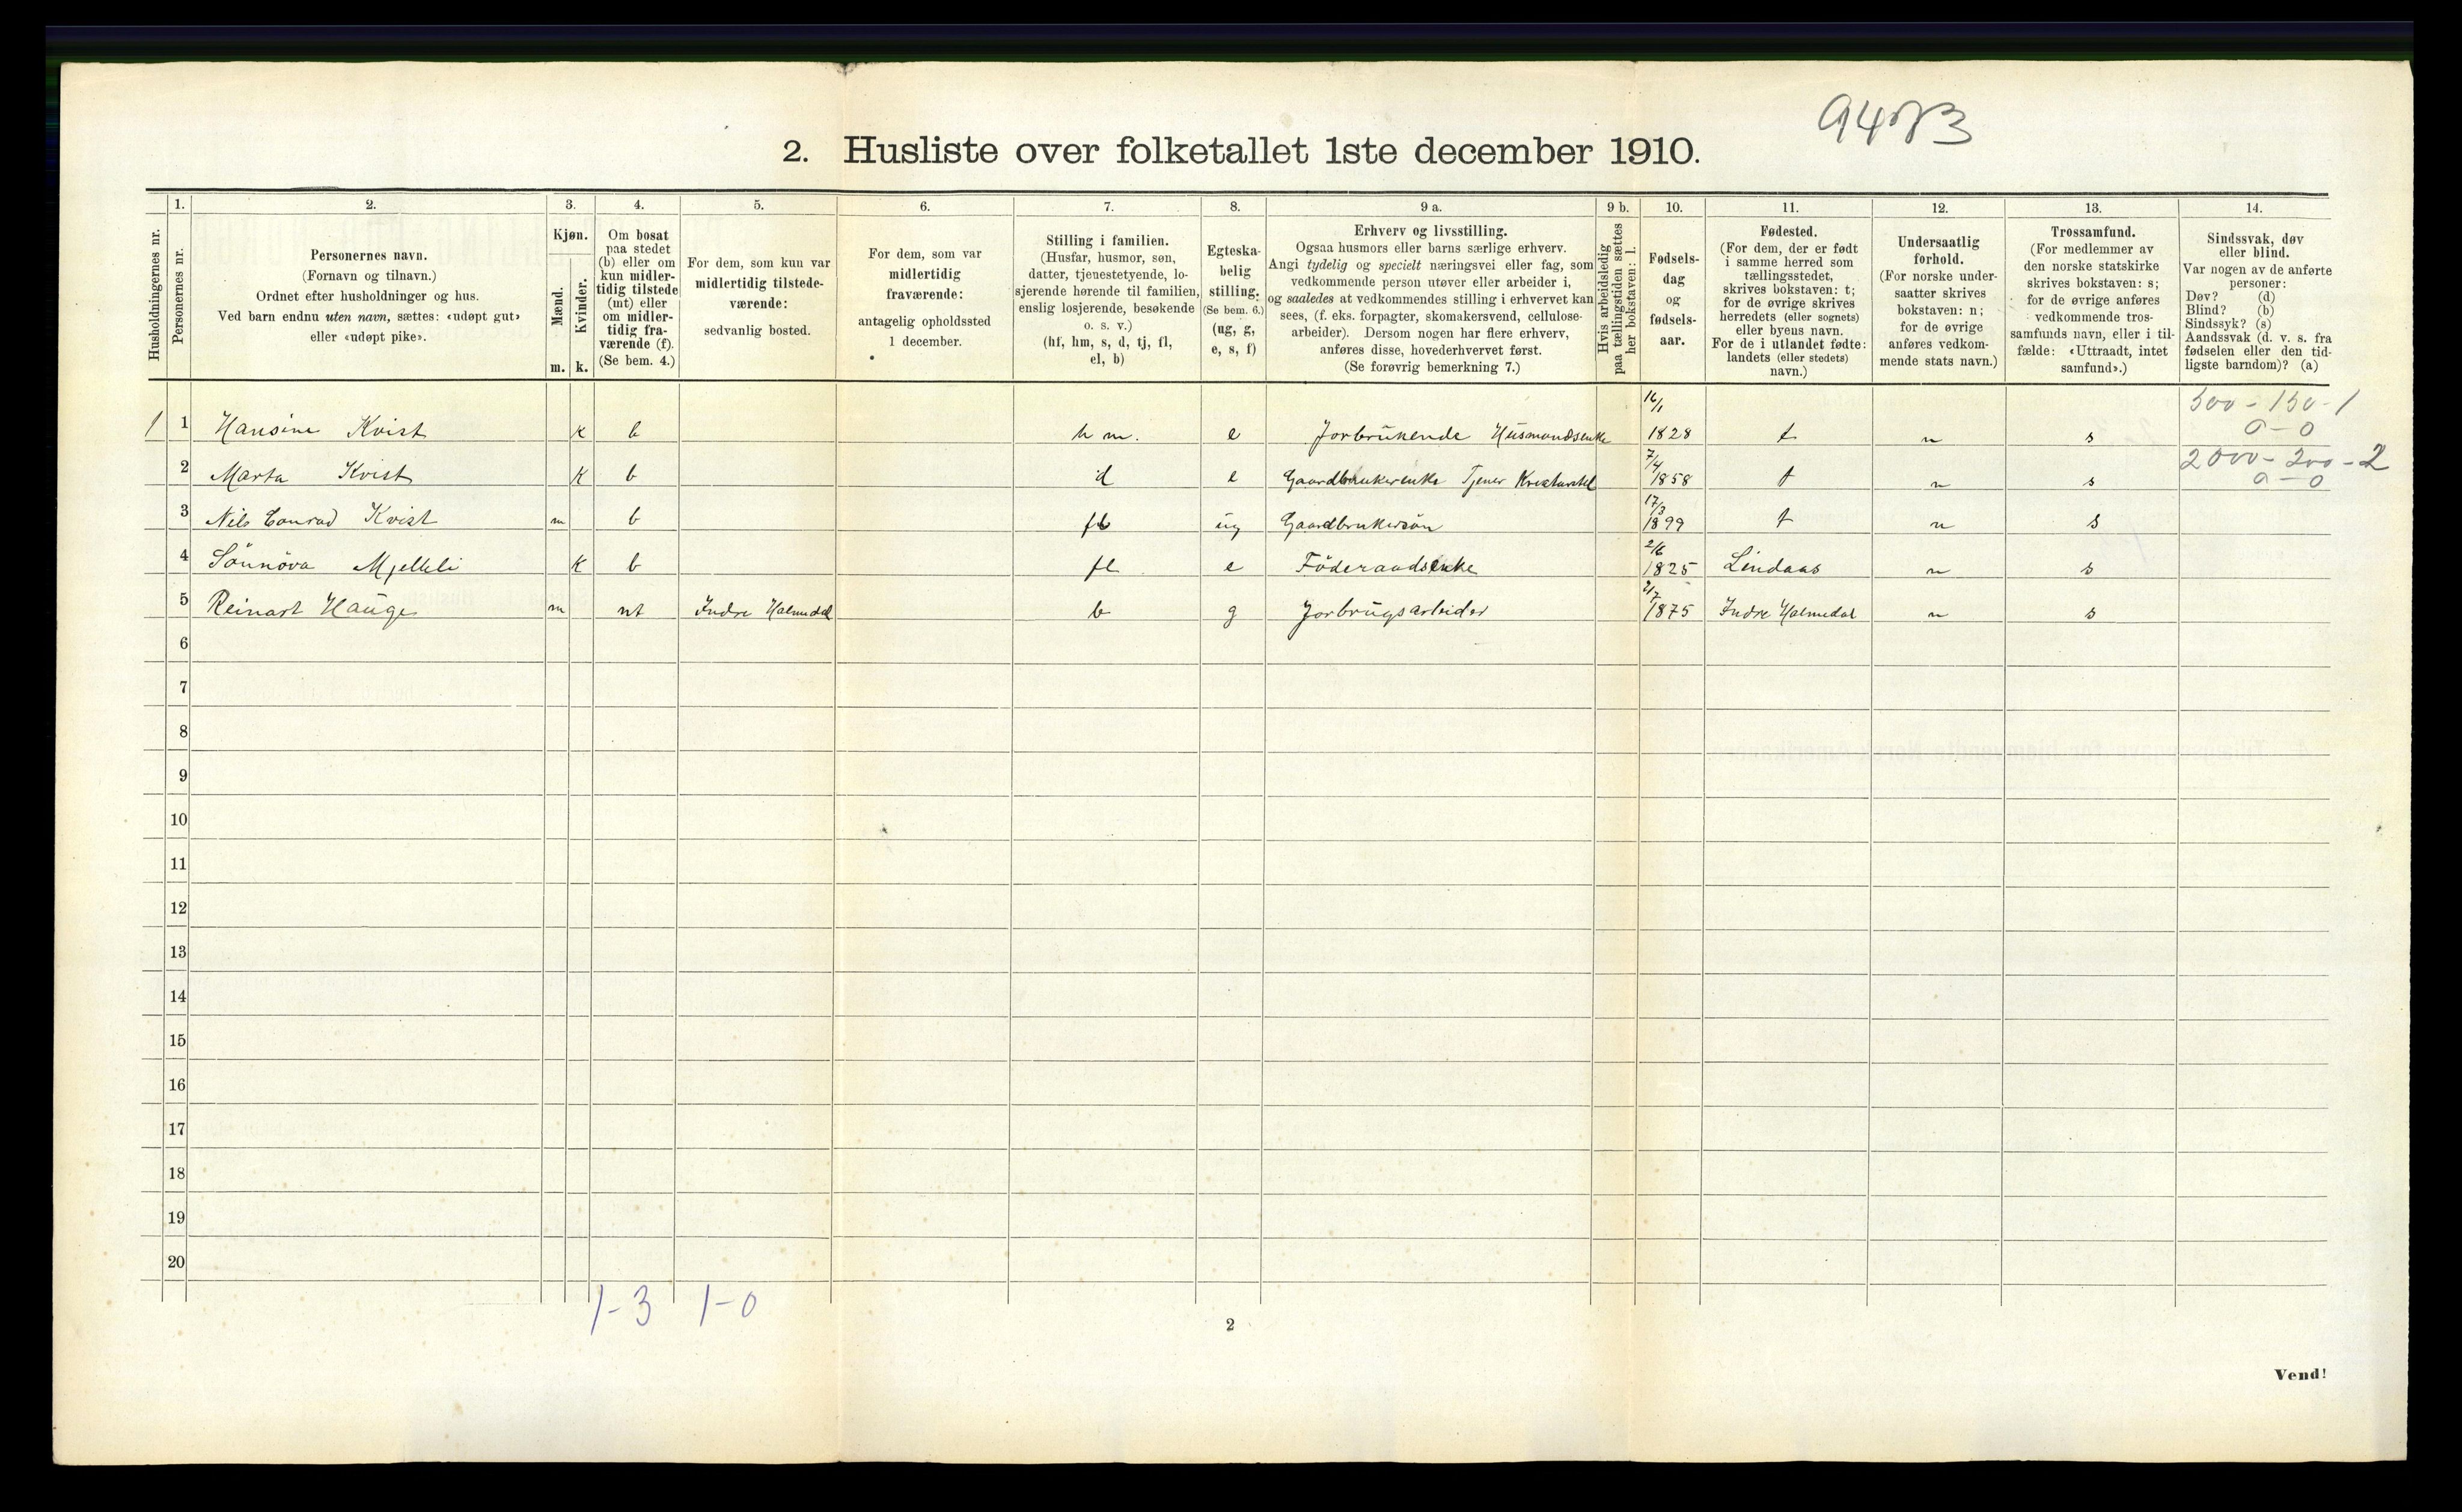 2. Husliste over folketallet 1ste december 1910.
1. 2. 3. 4. 5. 6. 7. 8. 9 a. 9 b. 10. 11. 12. 13. 14.
Husholdningernes nr.
Personernes nr.
Personernes navn.
(Fornavn og tilnavn.)
Ordnet efter husholdninger og hus.
Ved barn endnu uten navn, sættes: «udøpt gut»
eller «udøpt pike».
Kjøn.
Mænd.
Kvinder.
m. k.
Om bosat
paa stedet
(b) eller om
kun midler-
tidig tilstede
(mt) eller
om midler-
tidig fra-
værende (f).
(Se bem. 4.)
For dem, som kun var
midlertidig tilstede-
værende:
sedvanlig bosted.
For dem, som var
midlertidig
fraværende:
antagelig opholdssted
1 december.
Stilling i familien.
(Husfar, husmor, søn,
datter, tjenestetyende, lo-
sjerende hørende til familien,
enslig losjerende, besøkende
o. s. v.)
(hf, hm, s, d, tj, fl,
el, b)
Egteska-
belig
stilling.
(Se bem. 6.)
(ug, g,
e, s, f)
Erhverv og livsstilling.
Ogsaa husmors eller barns særlige erhverv.
Angi tydelig og specielt næringsvei eller fag, som
vedkommende person utøver eller arbeider i,
og saaledes at vedkommendes stilling i erhvervet kan
sees, (f. eks. forpagter, skomakersvend, cellulose-
arbeider). Dersom nogen har flere erhverv,
anføres disse, hovederhvervet først.
(Se forøvrig bemerkning 7.)
Hvis arbeidsledig
paa tællingstiden sættes
her bokstaven: l.
Fødsels-
dag
og
fødsels-
aar.
Fødested.
(For dem, der er født
i samme herred som
tællingsstedet,
skrives bokstaven: t;
for de øvrige skrives
herredets (eller sognets)
eller byens navn.
For de i utlandet fødte:
landets (eller stedets)
navn.)
Undersaatlig
forhold.
(For norske under-
saatter skrives
bokstaven: n;
for de øvrige
anføres vedkom-
mende stats navn.)
Trossamfund.
(For medlemmer av
den norske statskirke
skrives bokstaven: s;
for de øvrige anføres
vedkommende tros-
samfunds navn, eller i til-
fælde: «Uttraadt, intet
samfund».)
Sindssvak, døv
eller blind.
Var nogen av de anførte
personer:
Døv? (d)
Blind? (b)
Sindssyk? (s)
Aandssvak (d. v. s. fra
fødselen eller den tid-
ligste barndom)? (a)
500 - 150 - 1
0 - 0
1 1 Hansine Kvist k b h m. e Jorbrukende Husmandsenke 16/1 1828 t n s
2000 - 200 - 2
0 - 0
2 Marta Kvist k b d e Gaardbrukerenke 7/4 1858 t n s
3 Nils Conrad Kvist m b ug Gaardbrukersøn 17/3 1899 t n s
4 Sönnöva k b fl e Föderaadsenke 2/6 1825 Lindaas n s
5 Reinart Hauge m mt Indre Holmedal b g Jorbrugsarbeider 2/7 1875 Indre Holmedal n s
6
7
8
9
10
11
12
13
14
15
16
17
18
19
20
1-3 1-0
2
Vend!